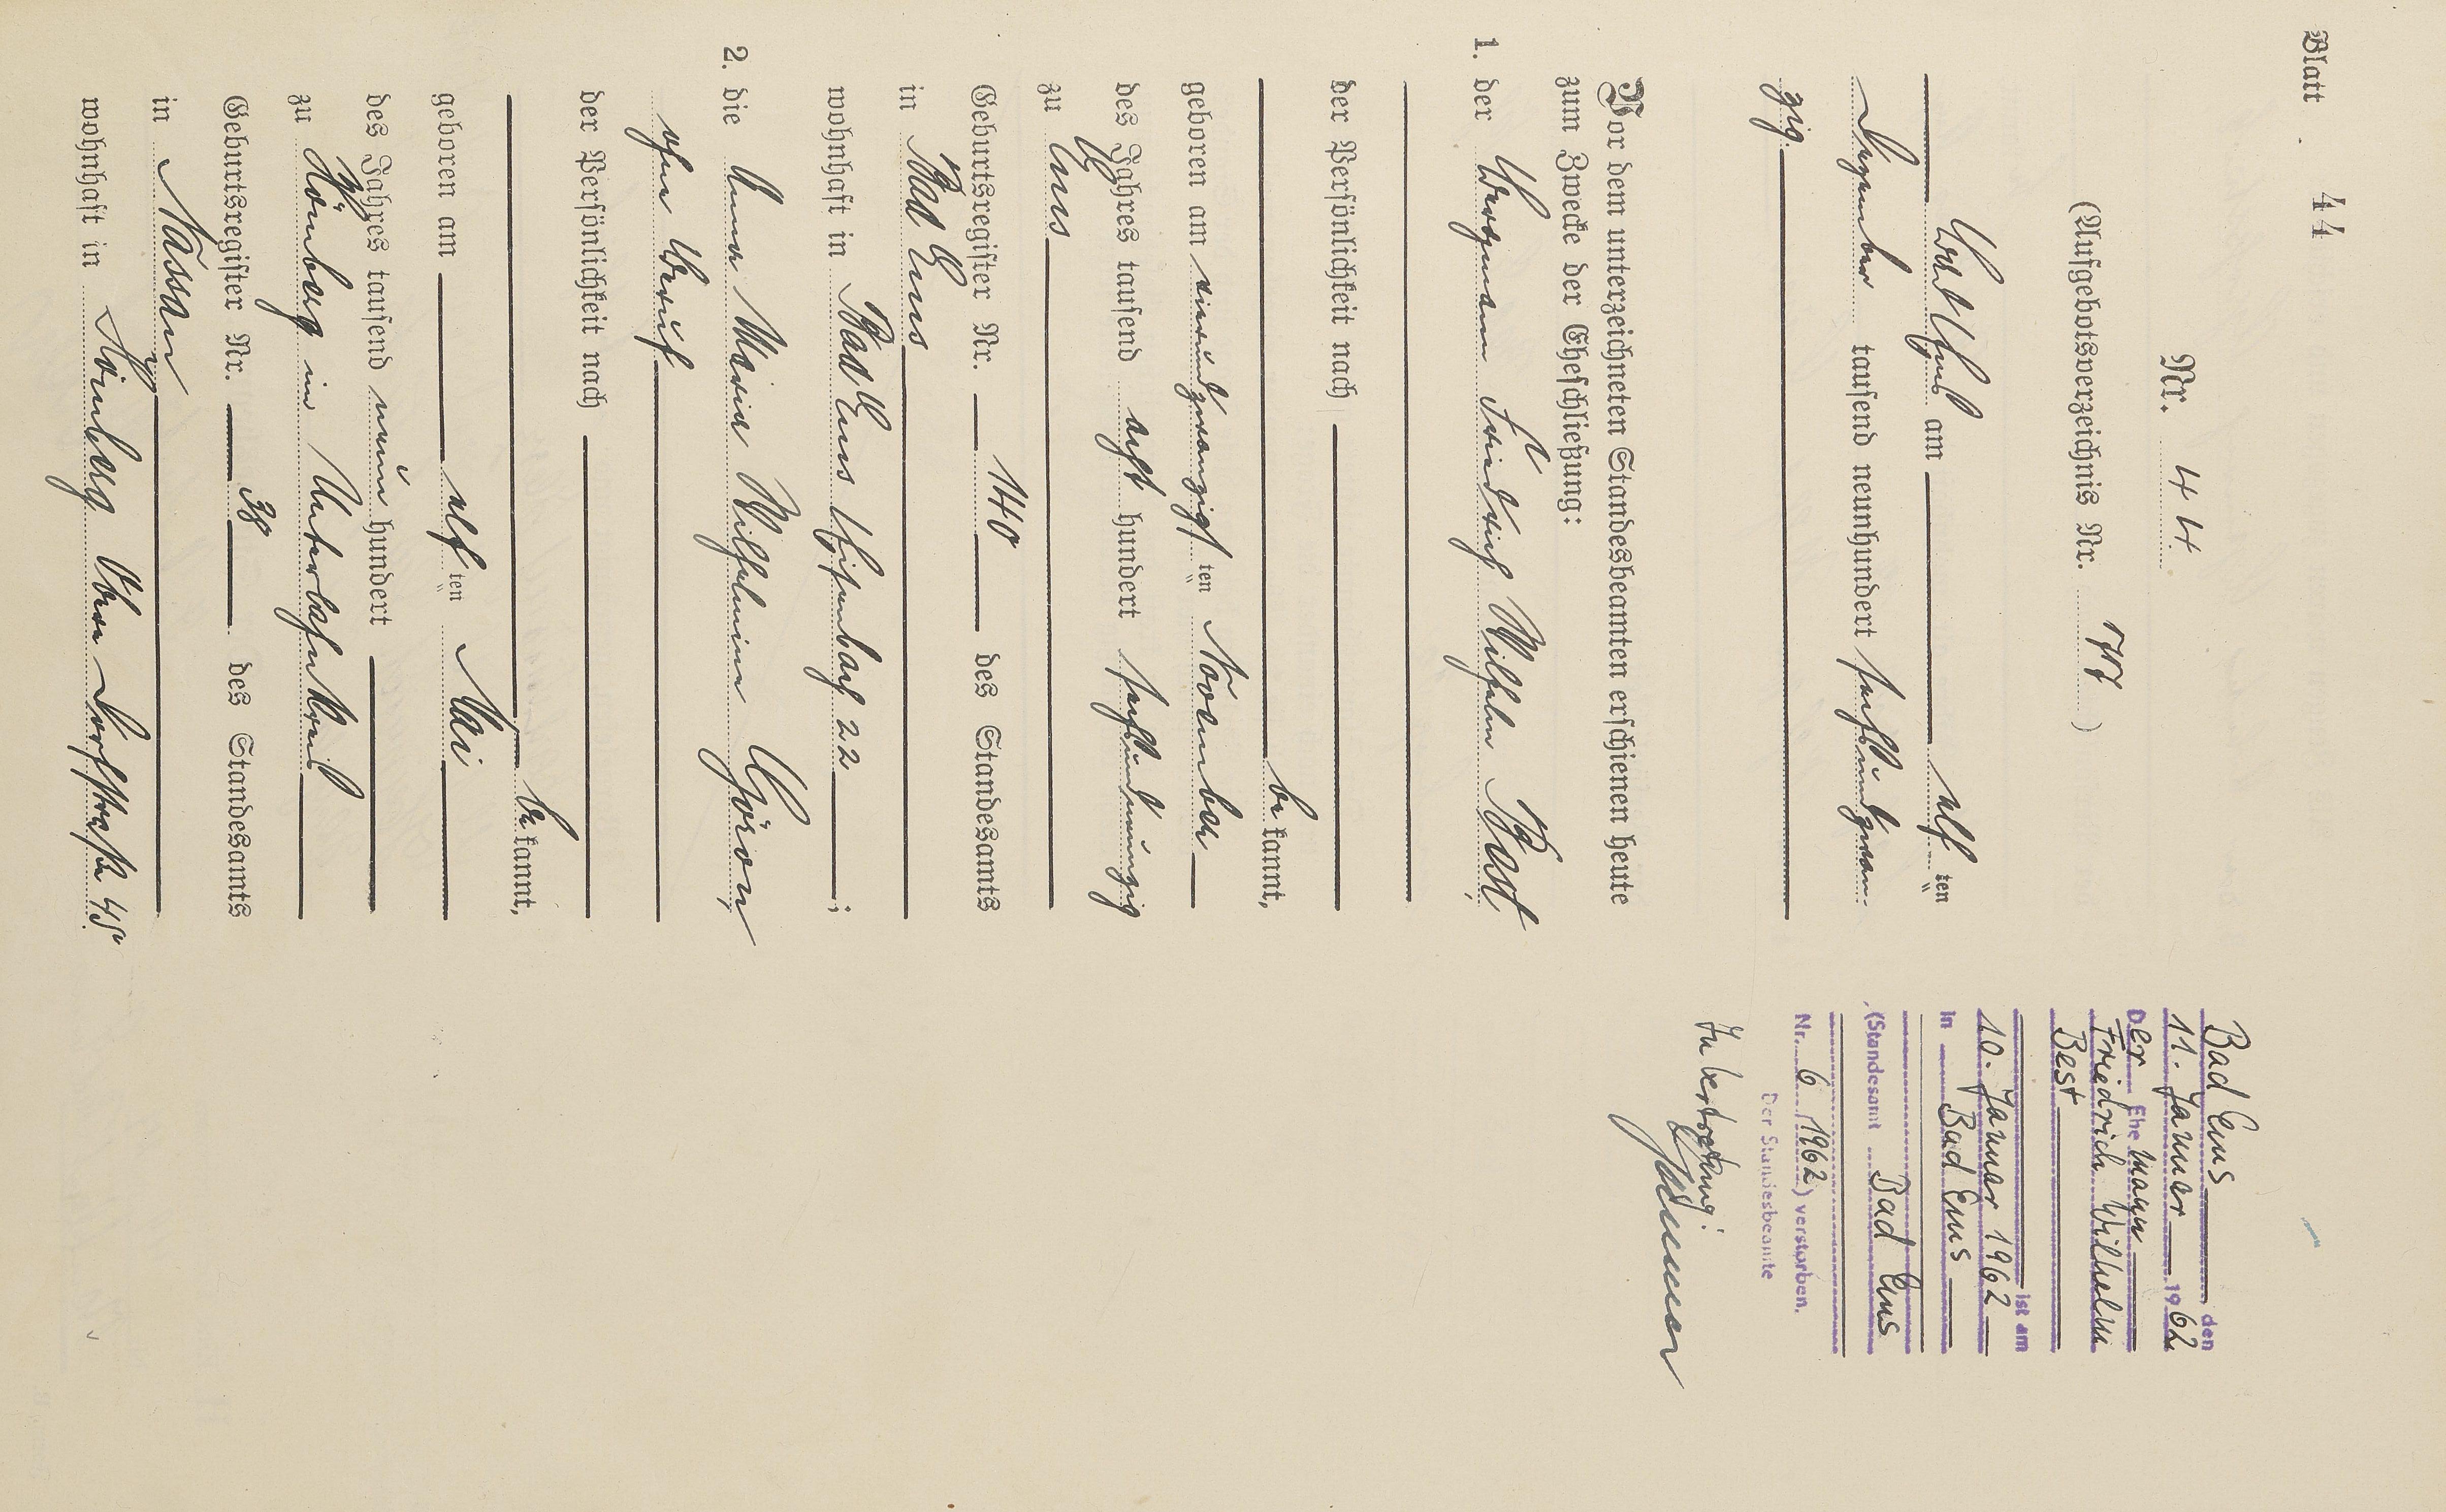 Blatt 44
Nr. 44.
(Aufgebotsverzeichnis Nr. 77)
Bad Ems am elf ten
Dezember tausend neunhundert sechsundzwan-
zig.
Vor dem unterzeichneten Standesbeamten erschienen heute
zum Zwecke der Eheschließung:
1. der Bergmann Friedrich Wilhelm Best,
der Persönlichkeit nach
be kannt,
geboren am einundzwanzigsten November
des Jahres tausend acht hundert sechsundneunzig
zu Ems
Geburtsregister Nr. 140 des Standesamts
in Bad Ems
wohnhaft in Bad Ems 22;
2. die Anna Maria Wilhelmine
ohne Beruf
der Persönlichkeit nach
be kannt,
geboren am elf ten Mai
des Jahres tausend neun hundert
zu Hömberg im Unterlahnkreis
Geburtsregister Nr. 38 des Standesamts
in Nassau
wohnhaft in Hömberg, Obere Dorfstraße 45.
Bad Ems, den
11. Januar 1962
Der Ehemann
Friedrich Wilhelm
Best
ist am
10. Januar 1962
in Bad Ems
(Standesamt Bad Ems
Nr. 6/1962) verstorben.
Der Standesbeamte
In Vertretung: